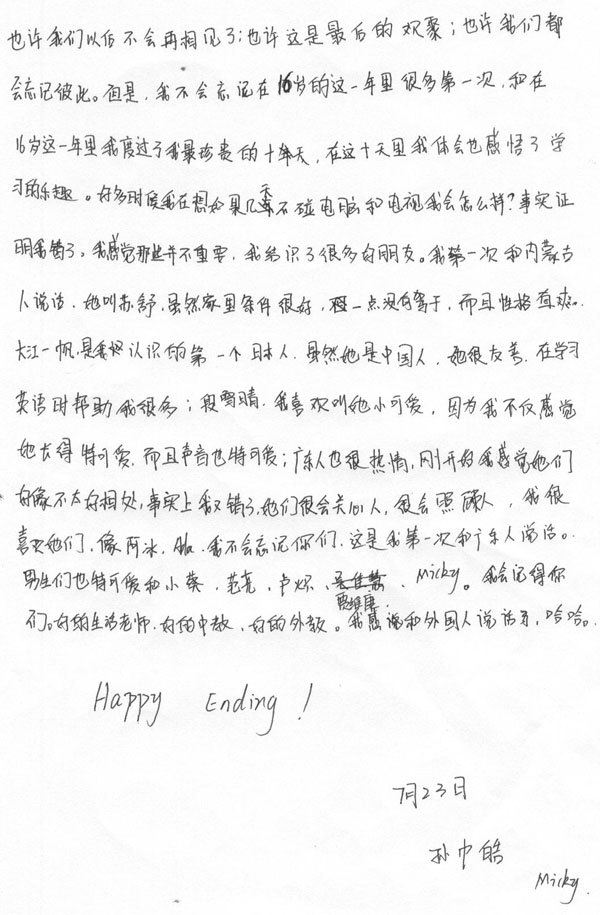 也许我们以后不会再相见了;也许这是最后的欢聚;也许我们都
会忘记彼此。但是,我不会忘记在16岁的这一年里很多第一次,和在
16岁这一年里我度过了我最珍贵的十天,在这十天里我体会也感悟了学
习的乐趣。好多时候我在想如果几天不碰电脑和电视我会怎么样?事实证
明我错了。我感觉那些并不重要,我结识了很多的朋友。我第一次和内蒙古
人说话,她叫苏舒,虽然家里条件很好,但一点没有骄于,而且性格直爽。
大江一帆,是我认识的第一个日本人,虽然她是中国人,她很友善,在学习
英语时帮助我很多;段雪晴,我喜欢叫她小可爱,因为我不仅感觉
她长得特可爱,而且声音也特可爱;广东人也很热情,刚开始我感觉她们
好像不太好相处,事实上我又错了,她们很会关心人,很会照顾人,我很
喜欢她们,像阿冰,我不会忘记你们,这是我第一次和广东人说话。
男生们也特可爱和小葵,范亮,卢烁,贾维康,Micky。我会记得你
们。好的生活老师,好的中教,好的外教。我感说和外国人说话了,哈哈。
Happy Ending!
7月23日
孙中皓
Micky